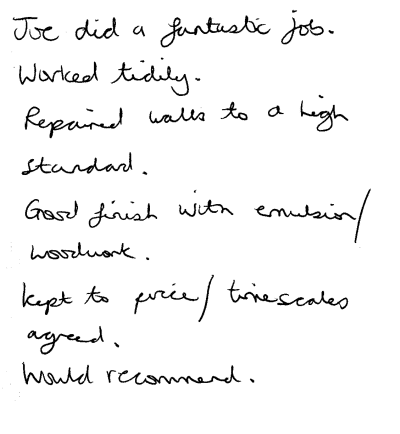 Joe did a fantastic job.
Worked tidily.
Repaired walls to a high
standard.
Good finish with emulsion/
woodwork.
kept to price/timescales
agreed.
Would recommend.